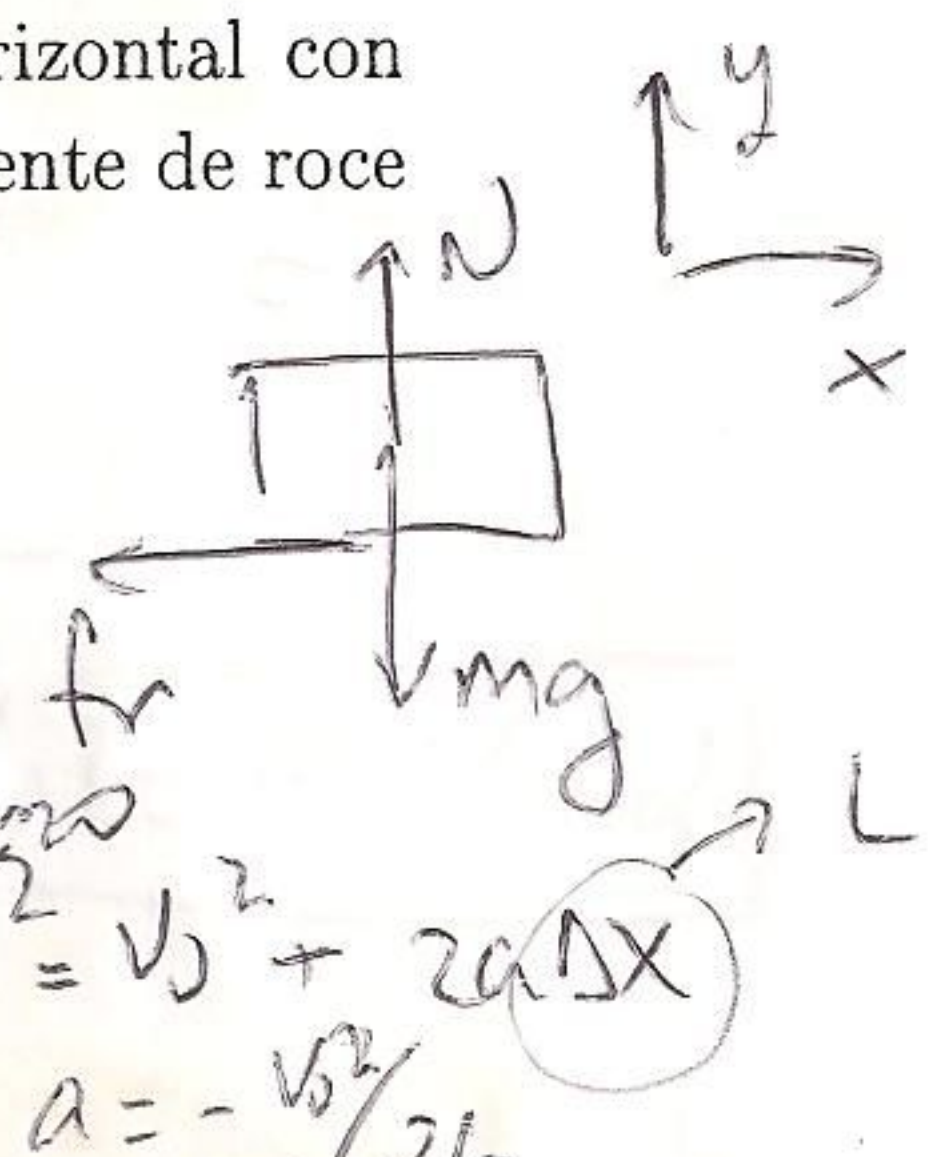 rizontal con
ente de roce
y
N
x
fr
mg
L
² = v₀² + 2aΔx
a = - v₀²/2L